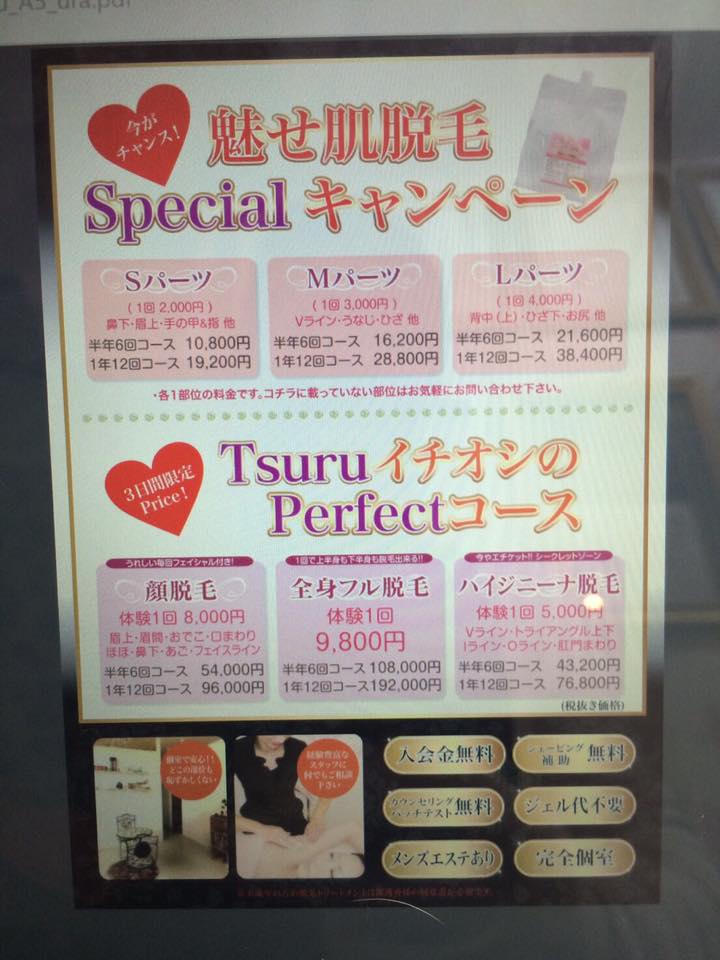 u_A5_ura.pdf
今が
チャンス！
魅せ肌脱毛
Special キャンペーン
Sパーツ
（1回 2,000円）
鼻下・眉上・手の甲&指 他
半年6回コース 10,800円
1年12回コース 19,200円
Mパーツ
（1回 3,000円）
Vライン・うなじ・ひざ 他
半年6回コース 16,200円
1年12回コース 28,800円
Lパーツ
（1回 4,000円）
背中（上）・ひざ下・お尻 他
半年6回コース 21,600円
1年12回コース 38,400円
・各1部位の料金です。コチラに載っていない部位はお気軽にお問い合わせ下さい。
3日間限定
Price！
Tsuruイチオシの
Perfectコース
うれしい毎回フェイシャル付き！
顔脱毛
体験1回 8,000円
眉上・眉間・おでこ・口まわり
ほほ・鼻下・あご・フェイスライン
半年6回コース 54,000円
1年12回コース 96,000円
1回で上半身も下半身も脱毛出来る!!
全身フル脱毛
体験1回
9,800円
半年6回コース 108,000円
1年12回コース 192,000円
今やエチケット!! シークレットゾーン
ハイジニーナ脱毛
体験1回 5,000円
Vライン・トライアングル上下
Iライン・Oライン・肛門まわり
半年6回コース 43,200円
1年12回コース 76,800円
（税抜き価格）
個室で安心！！
どこの部位も
恥ずかしくない
経験豊富な
スタッフに
何でもご相談
下さい
入会金無料
シェービング
補助 無料
カウンセリング
パッチテスト 無料
ジェル代不要
メンズエステあり
完全個室